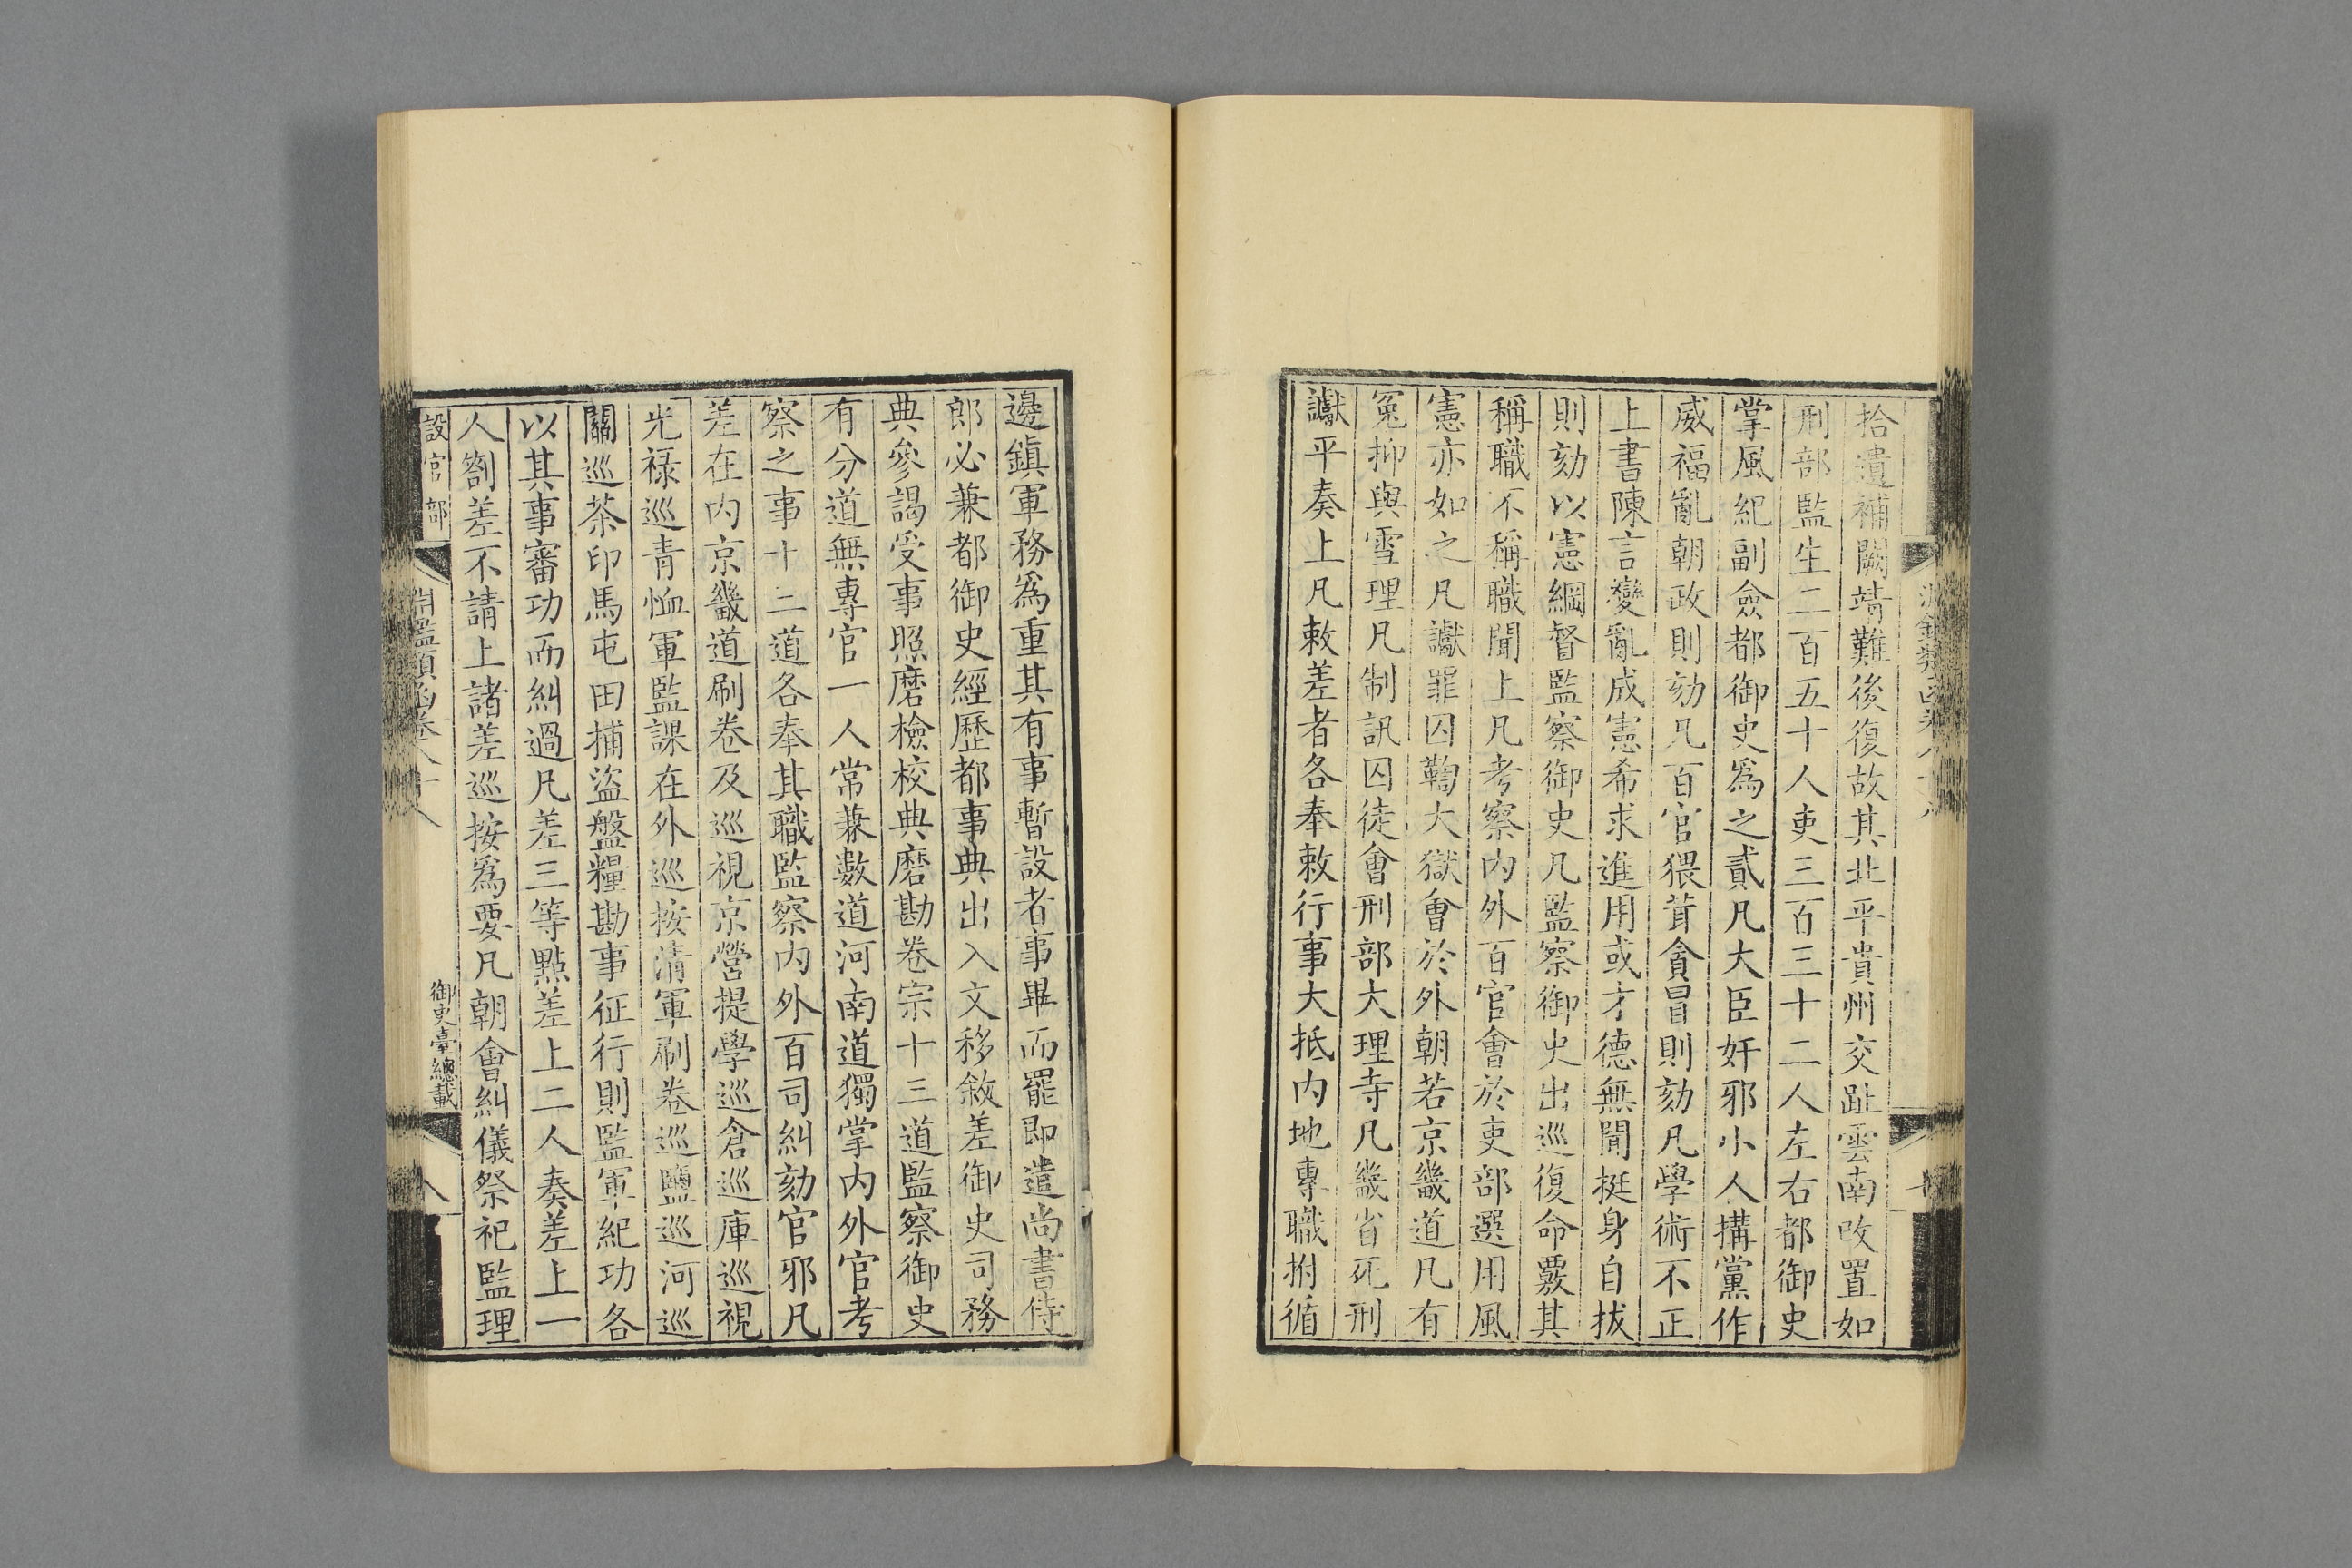 拾遺補闕靖難後復故其北平貴州交趾雲南改置如
刑部監生二百五十人吏三百三十二人左右都御史
掌風紀副僉都御史爲之貳凡大臣奸邪小人搆黨作
威福亂朝政則劾凡百官猥茸貪冒則劾凡學術不正
上書陳言變亂成憲希求進用或才德無聞挺身自拔
則劾以憲綱督監察御史凡監察御史出巡復命覈其
稱職不稱職聞上凡考察内外百官會於吏部選用風
憲亦如之凡讞罪囚鞫大獄會於外朝若京畿道凡有
冤抑與雪理凡制訊囚徒會刑部大理寺凡畿省死刑
讞平奏上凡敕差者各奉敕行事大抵内地專職拊循
邊鎮軍務爲重其有事暫設者事畢而罷即遣尚書侍
郎必兼都御史經歷都事典出入文移敘差御史司務
典參謁受事照磨檢校典磨勘卷宗十三道監察御史
有分道無專官一人常兼數道河南道獨掌内外官考
察之事十二道各奉其職監察内外百司糾劾官邪凡
差在内京畿道刷卷及巡視京營提學巡倉巡庫巡視
光祿巡青恤軍監課在外巡按清軍刷卷巡鹽巡河巡
關巡茶印馬屯田捕盜盤糧勘事征行則監軍紀功各
以其事審功而糾過凡差三等點差上二人奏差上一
人劄差不請上諸差巡按爲要凡朝會糾儀祭祀監理
設官部
淵鑑類函卷八十八
御史臺總載
八